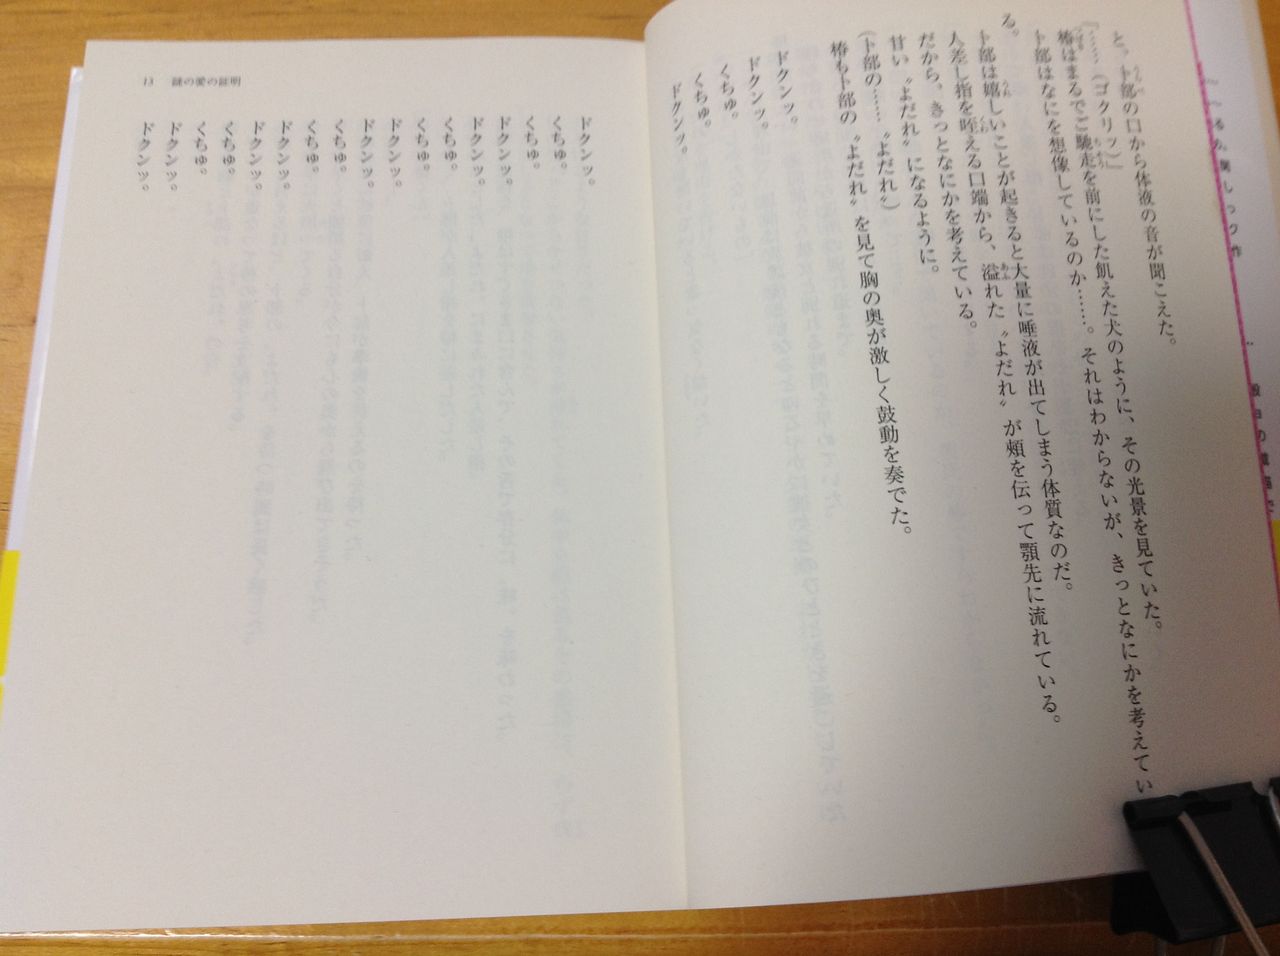 と、卜部の口から体液の音が聞こえた。
『……（ゴクリッ）』
椿はまるでご馳走を前にした飢えた犬のように、その光景を見ていた。
卜部はなにを想像しているのか……。それはわからないが、きっとなにかを考えてい
る。
卜部は嬉しいことが起きると大量に唾液が出てしまう体質なのだ。
人差し指を咥える口端から、溢れた〝よだれ〟が頰を伝って顎先に流れている。
だから、きっとなにかを考えている。
甘い〝よだれ〟になるように。
（卜部の……〝よだれ〟）
椿も卜部の〝よだれ〟を見て胸の奥が激しく鼓動を奏でた。
ドクンッ。
ドクンッ。
くちゅ。
くちゅ。
ドクンッ。
13 謎の愛の証明
ドクンッ。
くちゅ。
くちゅ。
ドクンッ。
ドクンッ。
くちゅ。
くちゅ。
ドクンッ。
ドクンッ。
くちゅ。
くちゅ。
ドクンッ。
ドクンッ。
くちゅ。
くちゅ。
ドクンッ。
ドクンッ。